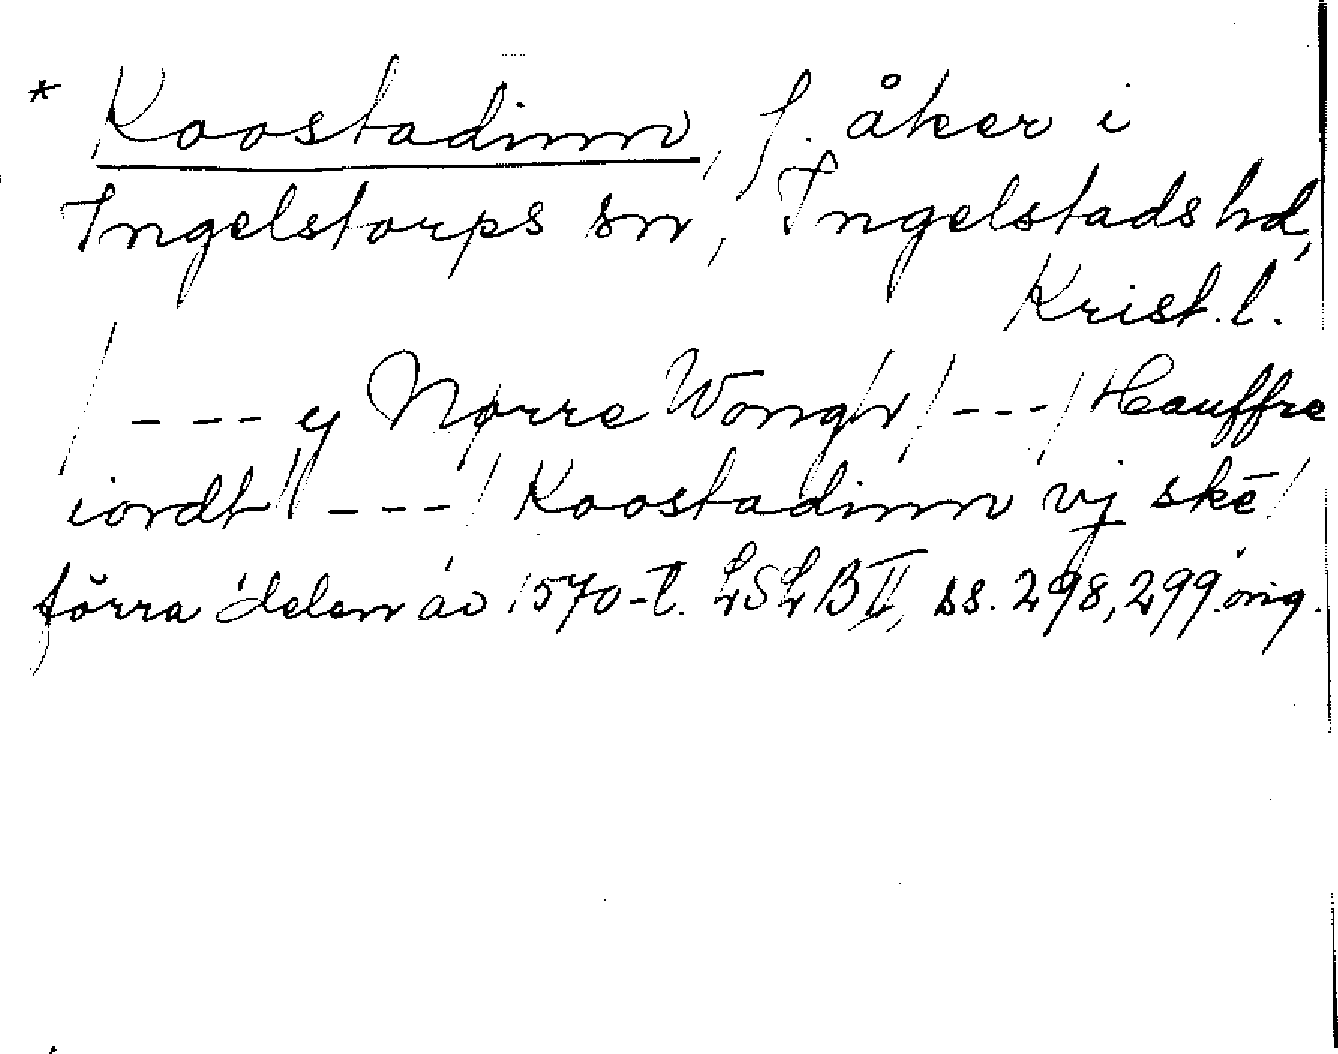 * Koostadinn, f. åker i
Ingelstorps sn, Ingelstads hd,
Krist. l.
/ --- y Nørre Wongh / --- / Hauffre
iordt / --- / Koostadinn vj skē /
förra delen av 1570-t. LSLB II, ss. 298, 299. orig.